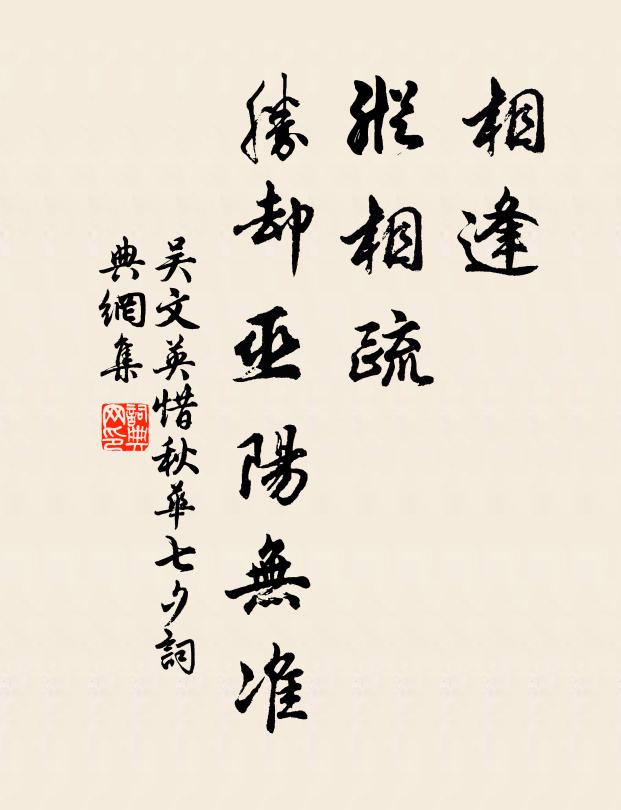 相逢
縱相疏
勝却巫陽無准
吴文英惜秋華七夕詞
典網集
詞典
网印